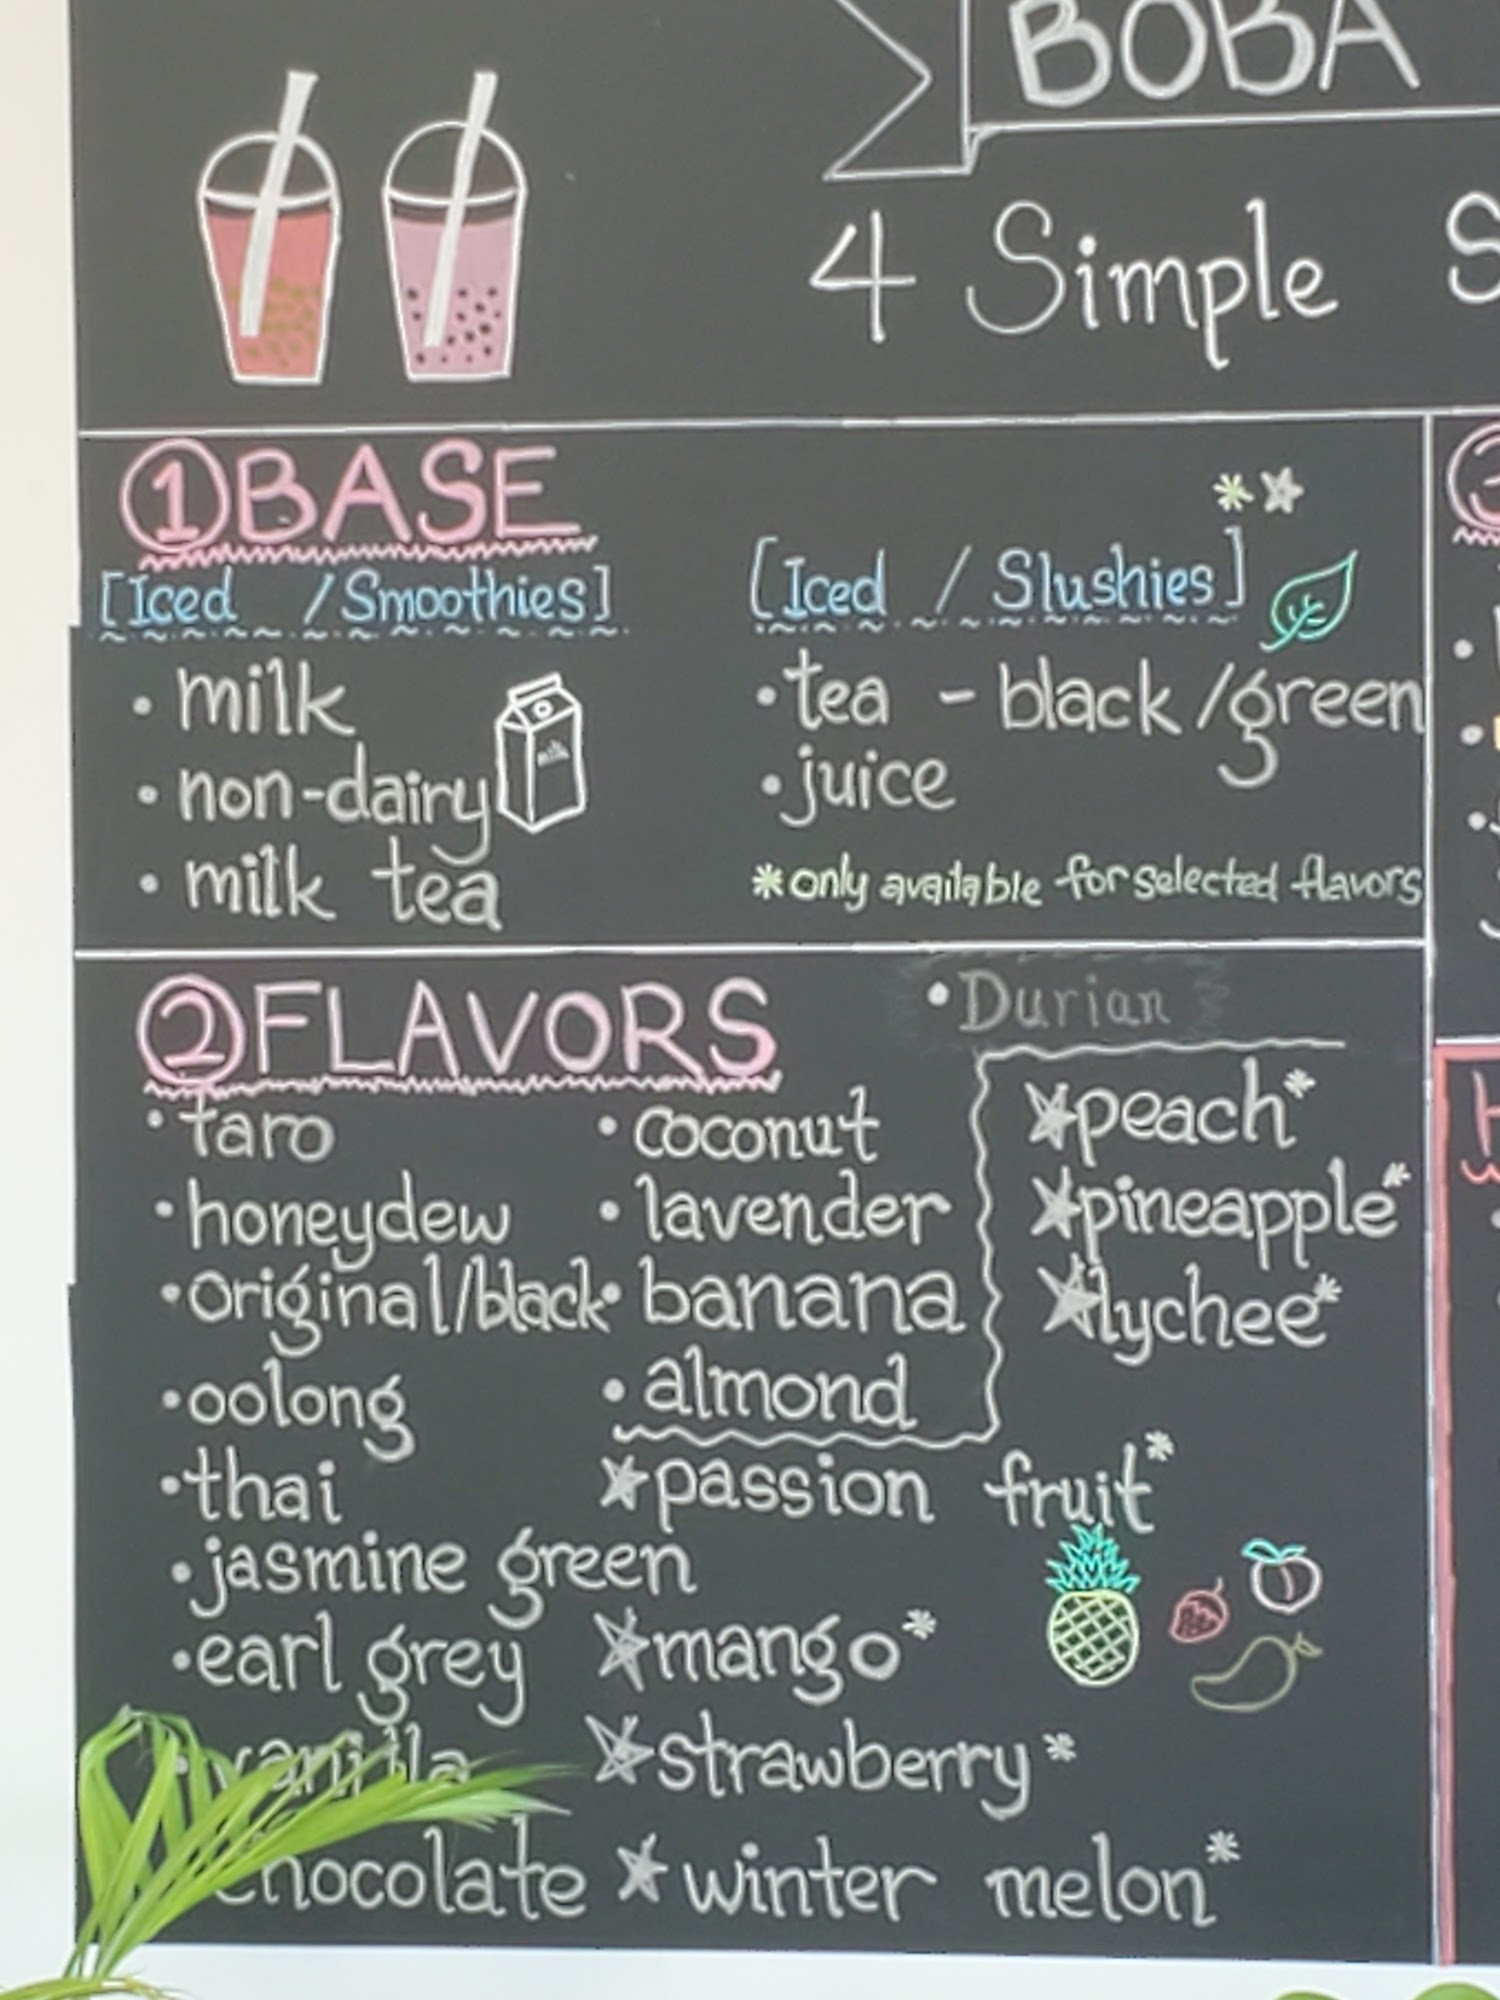 BOBA
4 Simple S
①BASE
[Iced / Smoothies]
• milk
• non-dairy
• milk tea
milk
* ☆
[Iced / Slushies]
• tea - black / green
• juice
*only available for selected flavors
②FLAVORS
• Durian
• taro
• honeydew
• Original/black
• oolong
• thai
• jasmine green
• earl grey
• vanilla
chocolate
• coconut
• lavender
• banana
• almond
★passion fruit*
★mango*
★strawberry*
★winter melon*
★peach*
★pineapple*
★lychee*